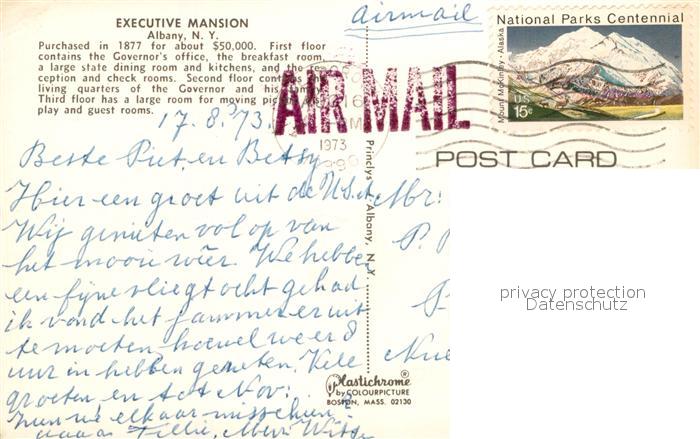 EXECUTIVE MANSION
Albany, N. Y.
Purchased in 1877 for about $50,000. First floor
contains the Governor's office, the breakfast room,
a large state dining room and kitchens, and the re-
ception and check rooms. Second floor contains the
living quarters of the Governor and his family.
Third floor has a large room for moving pic
play and guest rooms.
airmail
National Parks Centennial
Mount McKinley - Alaska
U.S.
15c
AIR MAIL
1973
POST CARD
17.8.'73.
Beste Piet en Betsy
Hier een groet uit de U.S.A.
Wij genieten volop van
het mooie weer. We hebben
een fijne vliegtocht gehad
ik vond het jammer er uit
te moeten hoewel we er 8
uur in hebben gezeten. Vele
groeten en tot Nov:
zien we elkaar misschien
Tillie,
Mr:
P.
Princlys - Albany, N. Y.
Plastichrome®
by COLOURPICTURE
BOSTON, MASS. 02130
privacy protection
Datenschutz